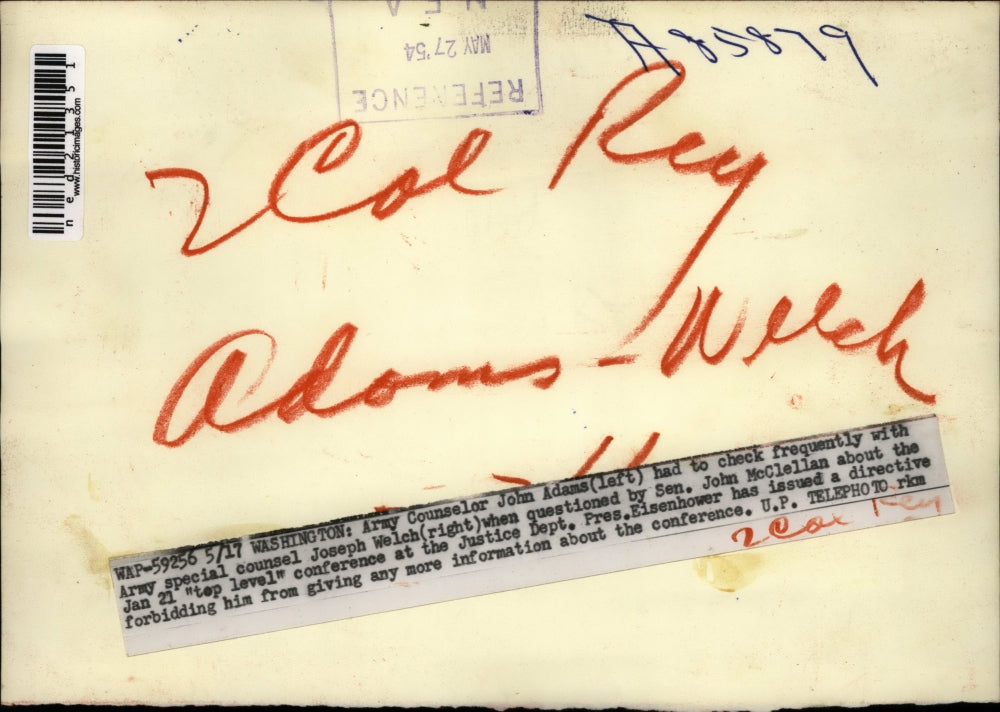 N.E.A.
MAY 27 '54
REFERENCE
A 85879
ned21351
www.historicimages.com
2 Col Rey
Adams - Welch
WAP-59256 5/17 WASHINGTON: Army Counselor John Adams(left) had to check frequently with
Army special counsel Joseph Welch(right)when questioned by Sen. John McClellan about the
Jan 21 "top level" conference at the Justice Dept. Pres.Eisenhower has issued a directive
forbidding him from giving any more information about the conference. U.P. TELEPHOTO rkm
2 Col Rey